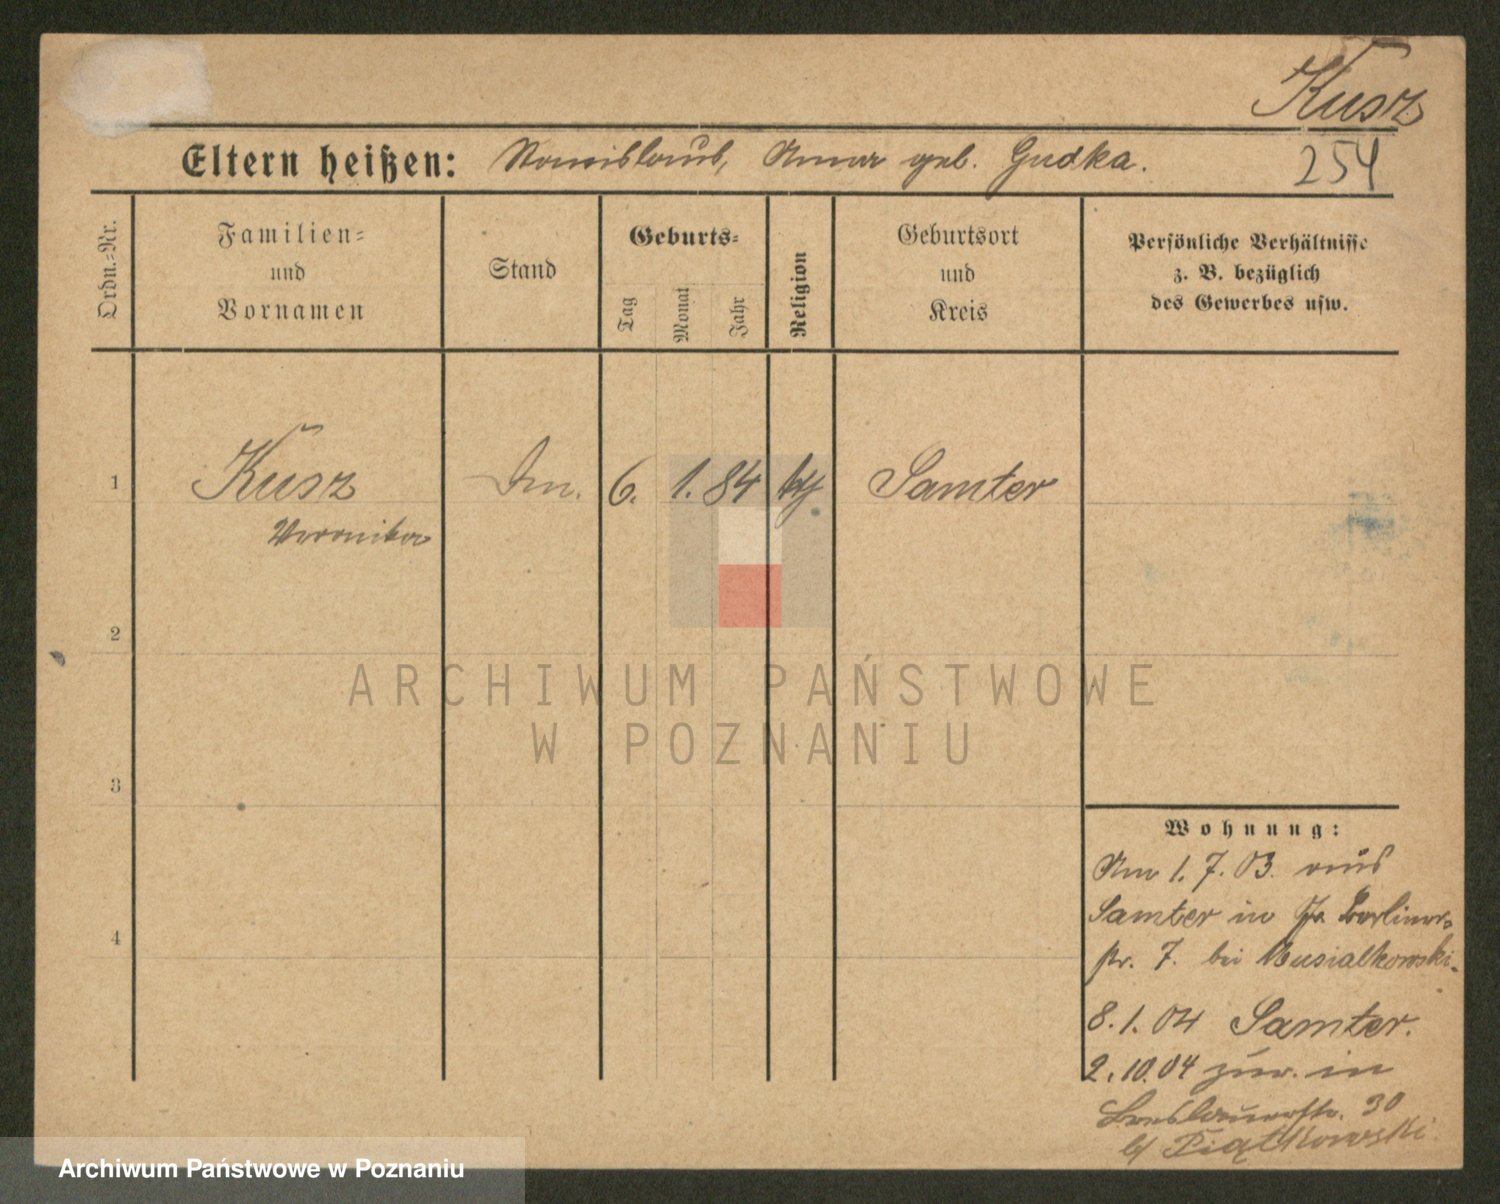 Kusz
Eltern heißen: Stanislaus, Anna geb. Gudka.
254
Ordn.-Nr.
Familien-
und
Vornamen
Stand
Geburts-
Tag
Monat
Jahr
Religion
Geburtsort
und
Kreis
Persönliche Verhältnisse
z. B. bezüglich
des Gewerbes usw.
1
Kusz
Veronika
6.
1.
84
Samter
2
3
4
Wohnung:
Am 1. 7. 03. aus
Samter in Berliner-
str. 7. bei Musialkowski.
8. 1. 04 Samter.
2. 10. 04 zur. in
Breslauerstr. 30
b/ Piątkowski.
ARCHIWUM PAŃSTWOWE
W POZNANIU
Archiwum Państwowe w Poznaniu